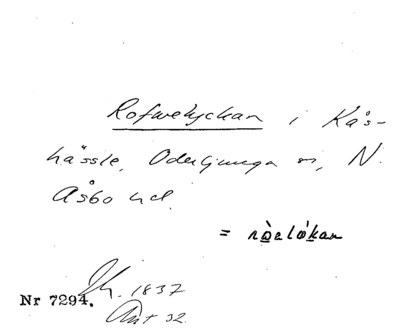 Rofwelyckan i Kås-
hässle, Oderljunga sn, N.
Åsbo hd.
= ròelókan
Nr 7294. 1837
Ant 32